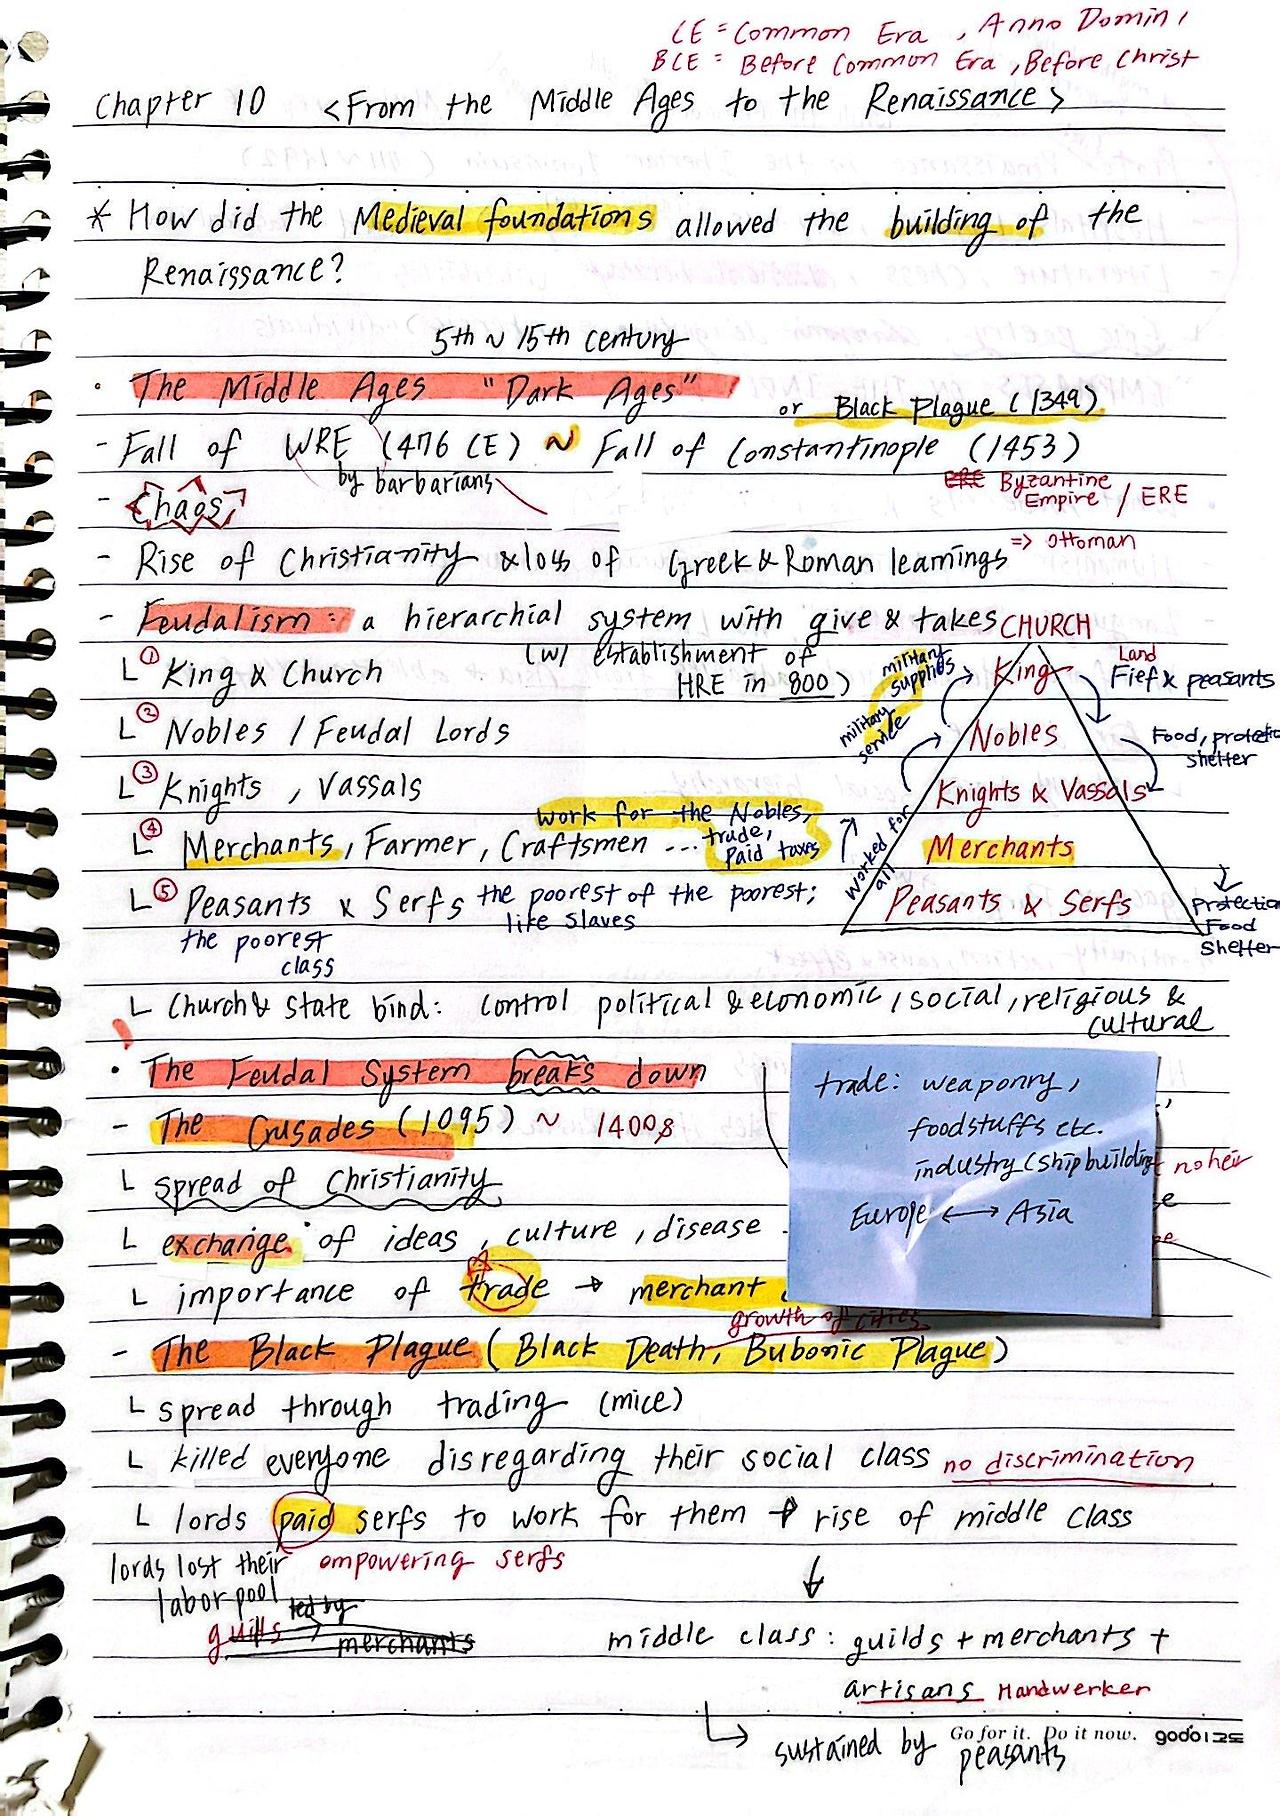 CE = Common Era , Anno Domini
BCE = Before Common Era , Before Christ
Chapter 10 <From the Middle Ages to the Renaissance>
* How did the Medieval foundations allowed the building of the
Renaissance?
5th ~ 15th century
· The Middle Ages "Dark Ages"
or Black Plague (1349)
- Fall of WRE (476 CE) ~ Fall of Constantinople (1453)
by barbarians
ERE Byzantine
Empire / ERE
- Chaos
- Rise of Christianity & loss of Greek & Roman learnings
=> Ottoman
- Feudalism : a hierarchial system with give & takes
(w/ establishment of
HRE in 800)
└ ① King & Church
└ ② Nobles / Feudal Lords
└ ③ Knights , Vassals
work for the Nobles,
trade,
paid taxes
└ ④ Merchants , Farmer , Craftsmen ...
└ ⑤ Peasants & Serfs the poorest of the poorest;
like slaves
the poorest
class
CHURCH
King
Nobles
Knights & Vassals
Merchants
Peasants & Serfs
military
supplies
military
service
Worked for
all
Land
Fief & peasants
Food, protectio
shelter
Protection
Food
Shelter
└ Church & State bind : control political & economic , social , religious &
cultural
· The Feudal System breaks down
- The Crusades (1095) ~ 1400s
└ spread of Christianity
└ exchange of ideas , culture , disease
└ importance of trade → merchant
growth of cities
trade : weaponry ,
foodstuffs etc.
industry (ship building
Europe ↔ Asia
no heir
- The Black Plague ( Black Death, Bubonic Plague )
└ spread through trading (mice)
└ killed everyone disregarding their social class no discrimination
└ lords paid serfs to work for them → rise of middle class
lords lost their
labor pool
empowering serfs
guilds → led by
merchants
↓
middle class : guilds + merchants +
artisans Handwerker
↳ sustained by
peasants
Go for it. Do it now.